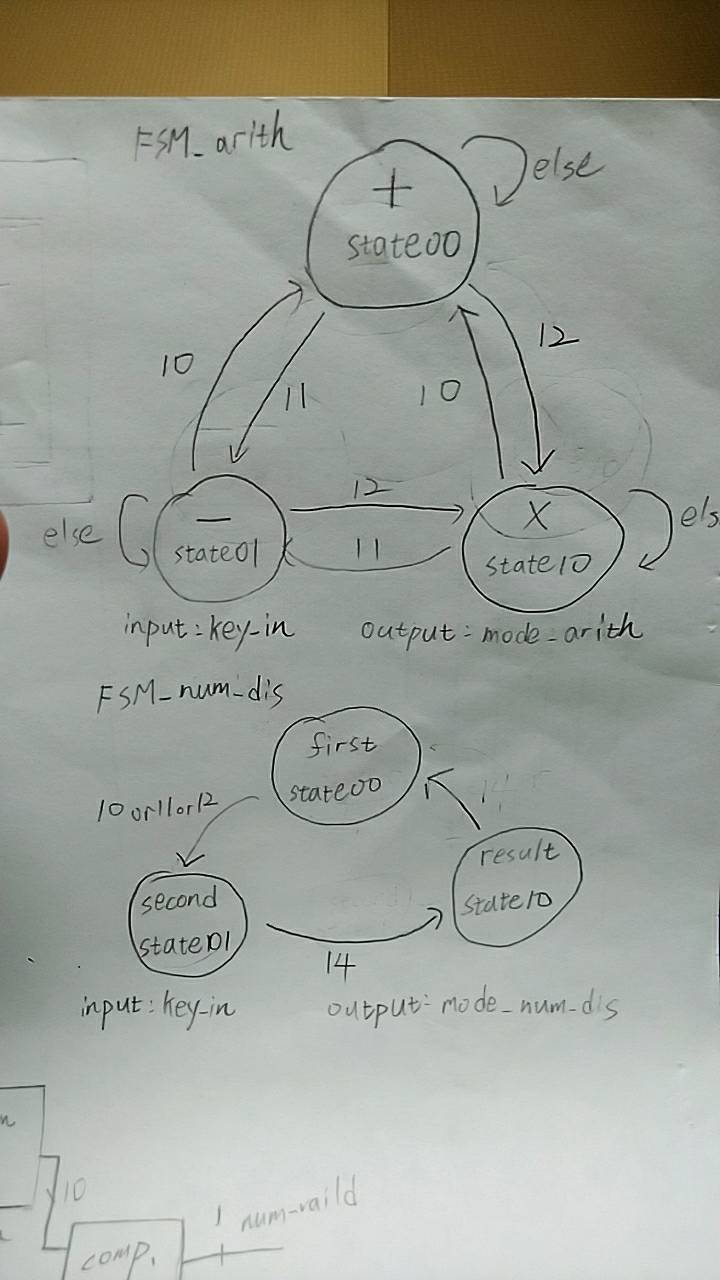 FSM_arith
else
+
state00
10
11
10
12
12
11
else
−
state01
X
state10
els
input:key-in
output:mode-arith
FSM_num-dis
first
state00
10 or 11 or 12
14
result
state10
second
state01
14
input:key-in
output:mode_num_dis
10
1
num-vaild
comp.